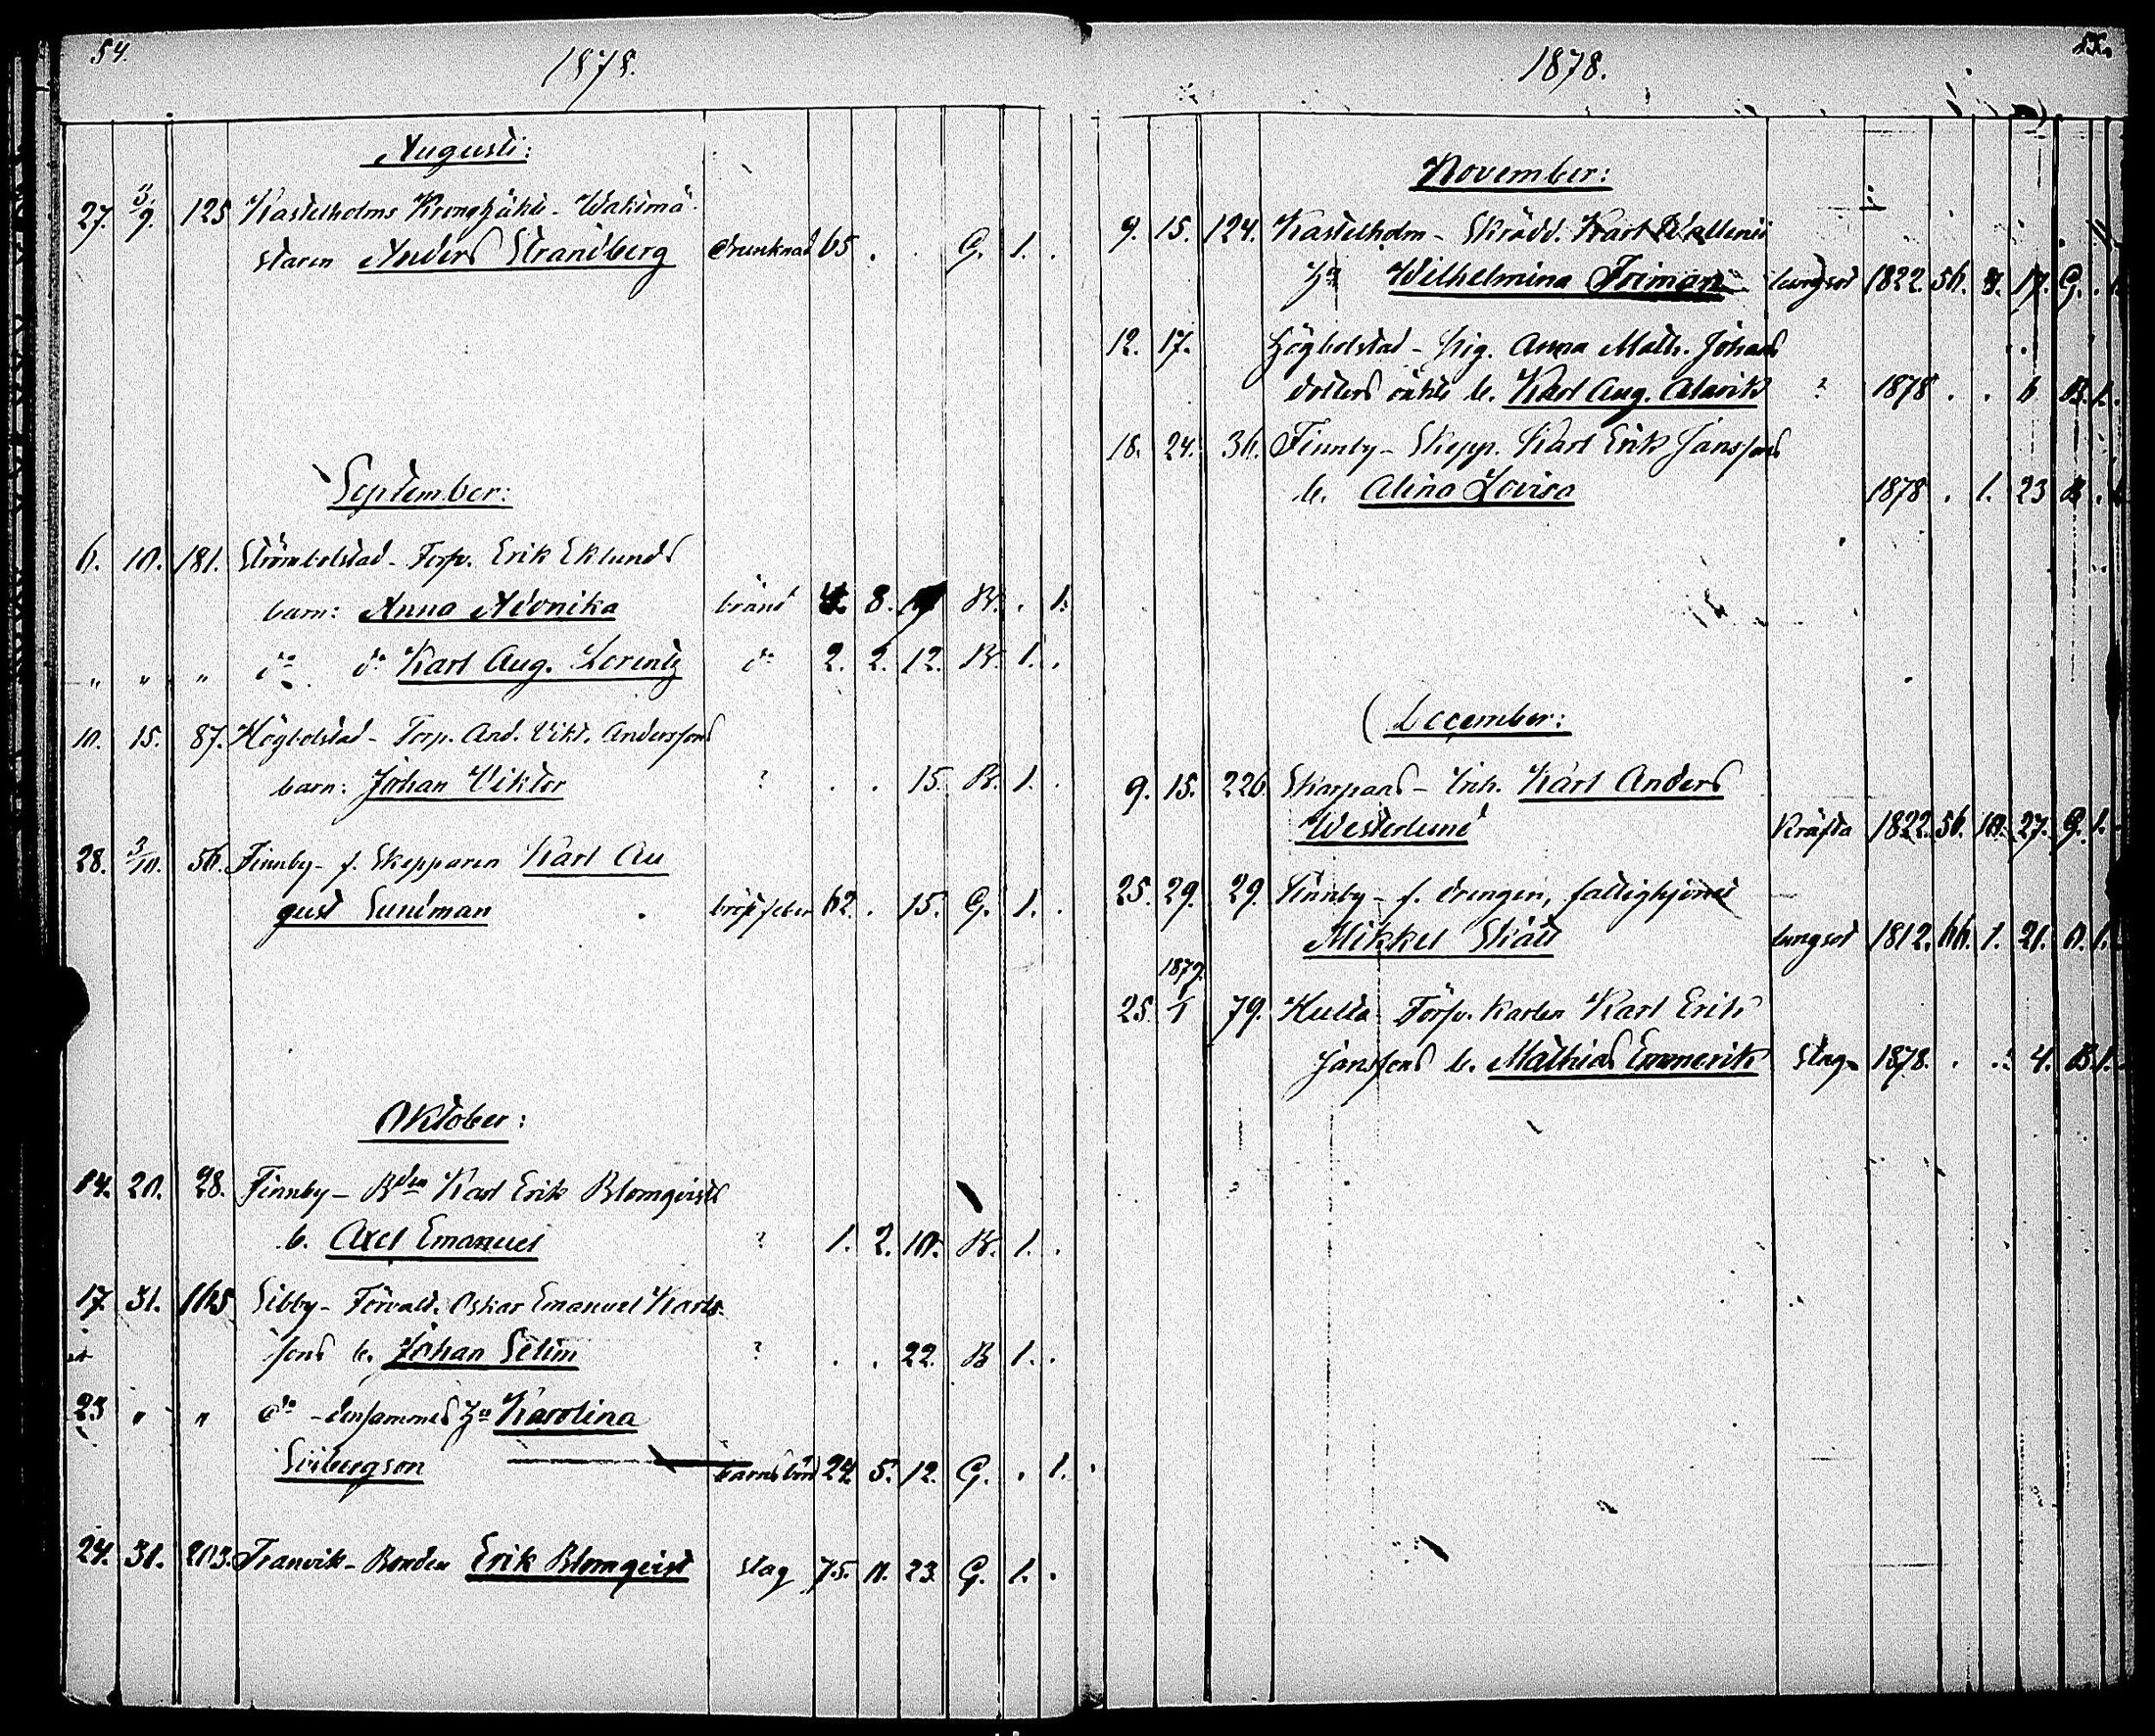 54.
1878.
Augusti:
27. 3/9. 125 Kastelholms Kronohäkte - Waktmä-
staren Anders Strandberg drunknad 65 . . G. 1. .
September:
6. 10. 181. Strömbolstad - Torp. Erik Eklunds
barn: Anna Alvonika bränd 4. 8. B. . 1.
" " " do do Karl Aug. Lorentz do 2. 2. 12. B. 1. .
10. 15. 87. Högbolstad - Torp. And. Vikt. Anderssons
barn: Johan Viktor ? . . 15. B. 1. .
28. 3/10. 56. Finnby - f. Skepparen Karl Au
gust Sundman bröstfeber 62. . 15. G. 1. .
Oktober:
14. 20. 28. Finnby - Bden Karl Erik Blomqvists
b. Axel Emanuel ? 1. 2. 10. B. 1. .
17. 31. 165 Sibby - Förvalt. Oskar Emanuel Karls-
sons b. Johan Selim ? . . 22. B 1. .
23 " " do - densammes Hu Karolina
Sirbergson barnsbörd 24. 5. 12. G. . 1.
24. 31. 203. Tranvik - Bonden Erik Blomqvist slag 75. 0. 23 G. 1. .
1878.
55.
November:
9. 15. 124. Kastelholm - Skrädd. Karl Wallenii
Hu Wilhelmina Friman lungsot 1822. 56. 8. 17. G. . 1
12. 17. Högbolstad - Pig. Anna Math. Johans
dotters oäkta b. Karl Aug. Alarik ? 1878 . . 6 B. 1.
18. 24. 36. Finnby - Skepp. Karl Erik Janssons
b. Alina Lovisa 1878 . 1. 23 B .
December:
9. 15. 226. Skarpans - Enk. Karl Anders
Westerlund Kräfta 1822. 56. 10. 27. G. 1.
25. 29. 29. Finnby - f. drengen, fattighjonet
Mikkel Skått lungsot 1812. 66. 1. 21. O. 1.
1879.
25. 1/1 79. Hulta - Torp. karlen Karl Erik
Janssons b. Mathias Emmerik Slag 1878. . . 4. B. 1.